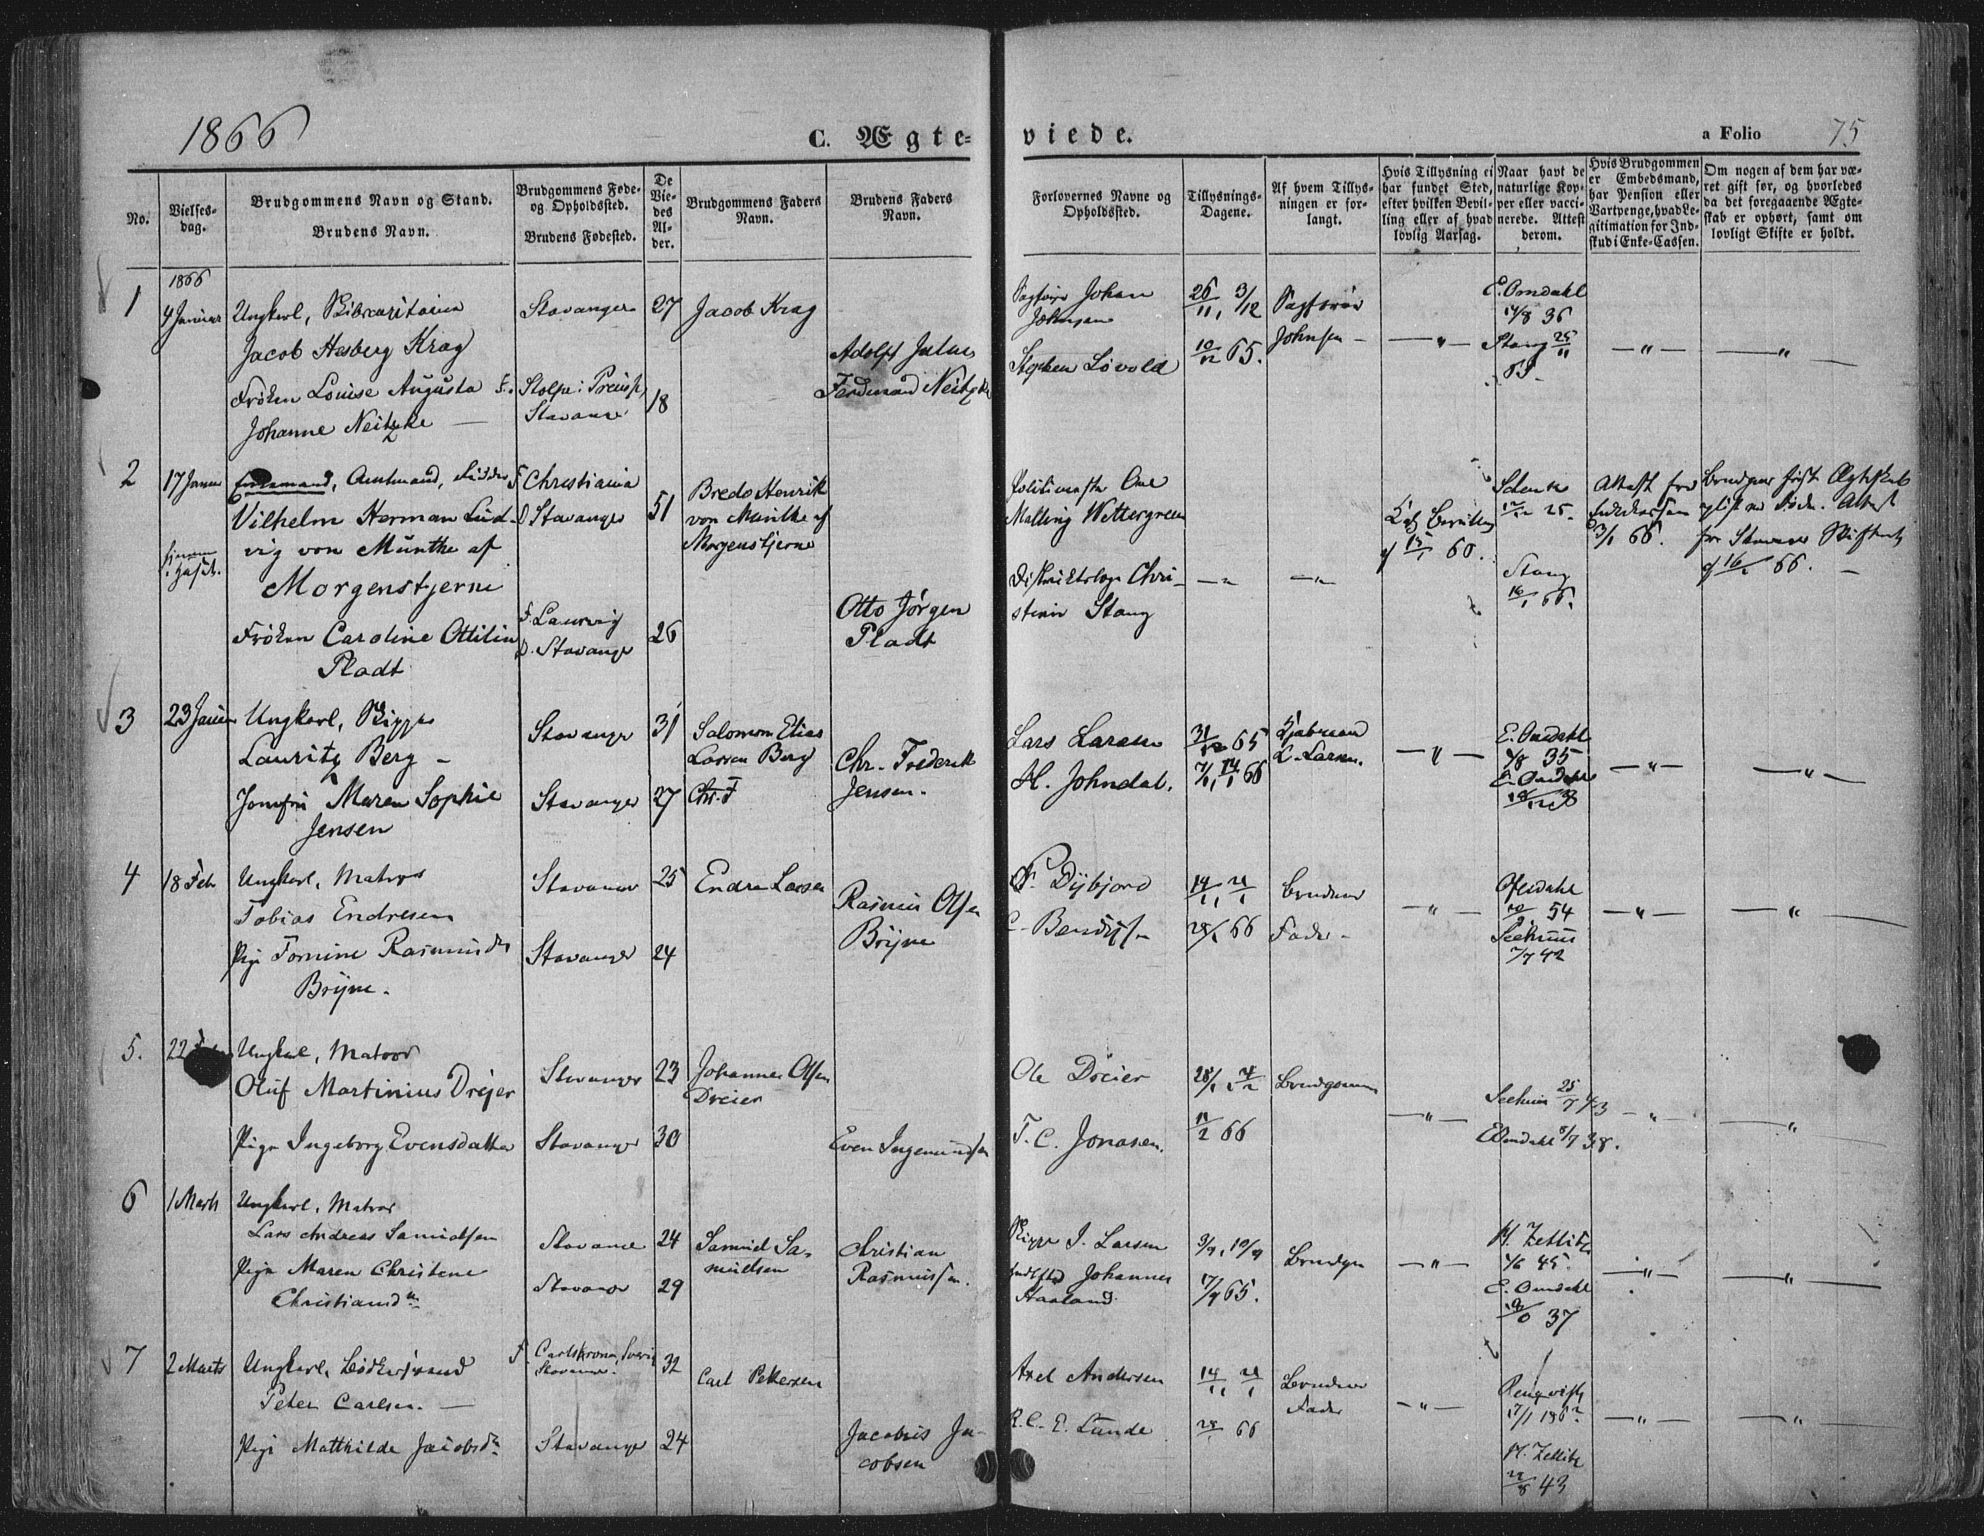 1866
C. Ægte-
viede.
a Folio 75
No.
Vielses-
dag.
Brudgommens Navn og Stand.
Brudens Navn.
Brudgommens Føde-
og Opholdssted.
Brudens Fødested.
De
Vie-
des
Al-
der.
Brudgommens Faders
Navn.
Brudens Faders
Navn.
Forlovernes Navne og
Opholdssted.
Tillysnings-
Dagene.
Af hvem Tillys-
ningen er for-
langt.
Hvis Tillysning ei
har fundet Sted,
efter hvilken Bevil-
ling eller af hvad
lovlig Aarsag.
Naar havt de
naturlige Kop-
per eller vacci-
nerede. Attest
derom.
Hvis Brudgommen
er Embedsmand,
har Pension eller
Vartpenge, hvad Le-
gitimation for Ind-
skud i Enke-Cassen.
Om nogen af dem har væ-
ret gift før, og hvorledes
da det foregaaende Ægte-
skab er ophørt, samt om
lovligt Skifte er holdt.
1866
1
4 Januar
Ungkarl,
Jacob Hesberg Krag
Frøken Louise Augusta
Johanne Neitzke
Stavanger
Stolpe i Preuss.
Stavanger
27
18
Jacob Krag
Adolph Julius
Ferdinand Neitzke
Johan
Johnsen
Stephen Løvold
26/11, 3/12
10/12 65.
Sagfører
Johnsen
— " —
E. Omdahl
14/8 36
Stang 25/11
65
— " —
— " —
2
17 Januar
Enkemand, Amtmand, Ridder
Vilhelm Herman Lud-
vig von Munthe af
Morgenstjerne
Frøken Caroline Ottilia
Pladt
F. Christiania
O. Stavanger
F. Laurvig
O. Stavanger
51
26
Bredo Henrik
von Munthe af
Morgenstjerne
Otto Jørgen
Pladt
Politimester Ove
Malling Wettergreen
Distriktslæge Chri-
stian Stang
— " —
— " —
Kgl. Bevilling
af 60.
25.
Stang
16/1 66.
Attest fra
Enkekassen
3/1 66.
Brudgom først Ægteskab
Attest
fra Stavanger Skifteret
af 16/1 66. —
3
23 Januar
Ungkarl, Skipper
Lauritz Berg —
Jomfru Maren Sophie
Jensen
Stavanger
Stavanger
31
27
Salomon Elias
Larsen Berg
Chr. F
Chr. Frederik
Jensen.
Lars Larsen
H. Johndal.
31/12 65
7/1, 14/1 66
L. Larsen.
— " —
E. Omdahl
4/8 35
E. Omdahl
— " —
— " —
4
18 Feb
Ungkarl, Matros
Tobias Endresen
Pige Tomine Rasmusdtr
Bryne.
Stavanger
Stavanger
25
24
Endre Larsen
Rasmus Olsen
Bryne
P. Dybjord
C. Bendixsen
14/1, 21/1
28/1 66
Brudens
Fader —
— " —
Ofredahl
54
Seehuus
7/7 42
— " —
— " —
5.
22 Feb
Ungkarl, Matros
Oluf Martinius Drejer
Pige Ingeborg Evensdatter
Stavanger
Stavanger
23
30
Johannes Olsen
Dreier
Even Ingemundsen
Ole Dreier
T. C. Jonasen.
28/1, 4/2
11/2 66
Brudgommen
— " —
Seehuus 25/7 43
E. Omdahl 8/7 38.
— " —
— " —
6
1 Marts
Ungkarl, Matros
Lars Andreas Samuelsen
Pige Maren Christene
Christiansdtr
Stavanger
Stavanger
24
29
Samuel Sa-
muelsen
Christian
Rasmussen.
Skipper J. Larsen
Johannes
Haaland
3/9, 10/9
17/9 65.
Brudgom
— " —
H. Zetlitz
4/6 45.
E. Omdahl
37
— " —
— " —
7
2 Marts
Ungkarl, Bødkersvend
Peter Carlsen. —
Pige Matthilde Jacobsdtr
F. Carlskrona, Sverig
Stavanger.
Stavanger
32
24
Carl Pettersen
Jacobus Ja-
cobsen
Axel Andersen
R. C. E. Lunde
14/1, 21/1
28/1 66
Brudens
Fader
— " —
Renqvist
17/1
H. Zetlitz
22/8 43
— " —
— " —